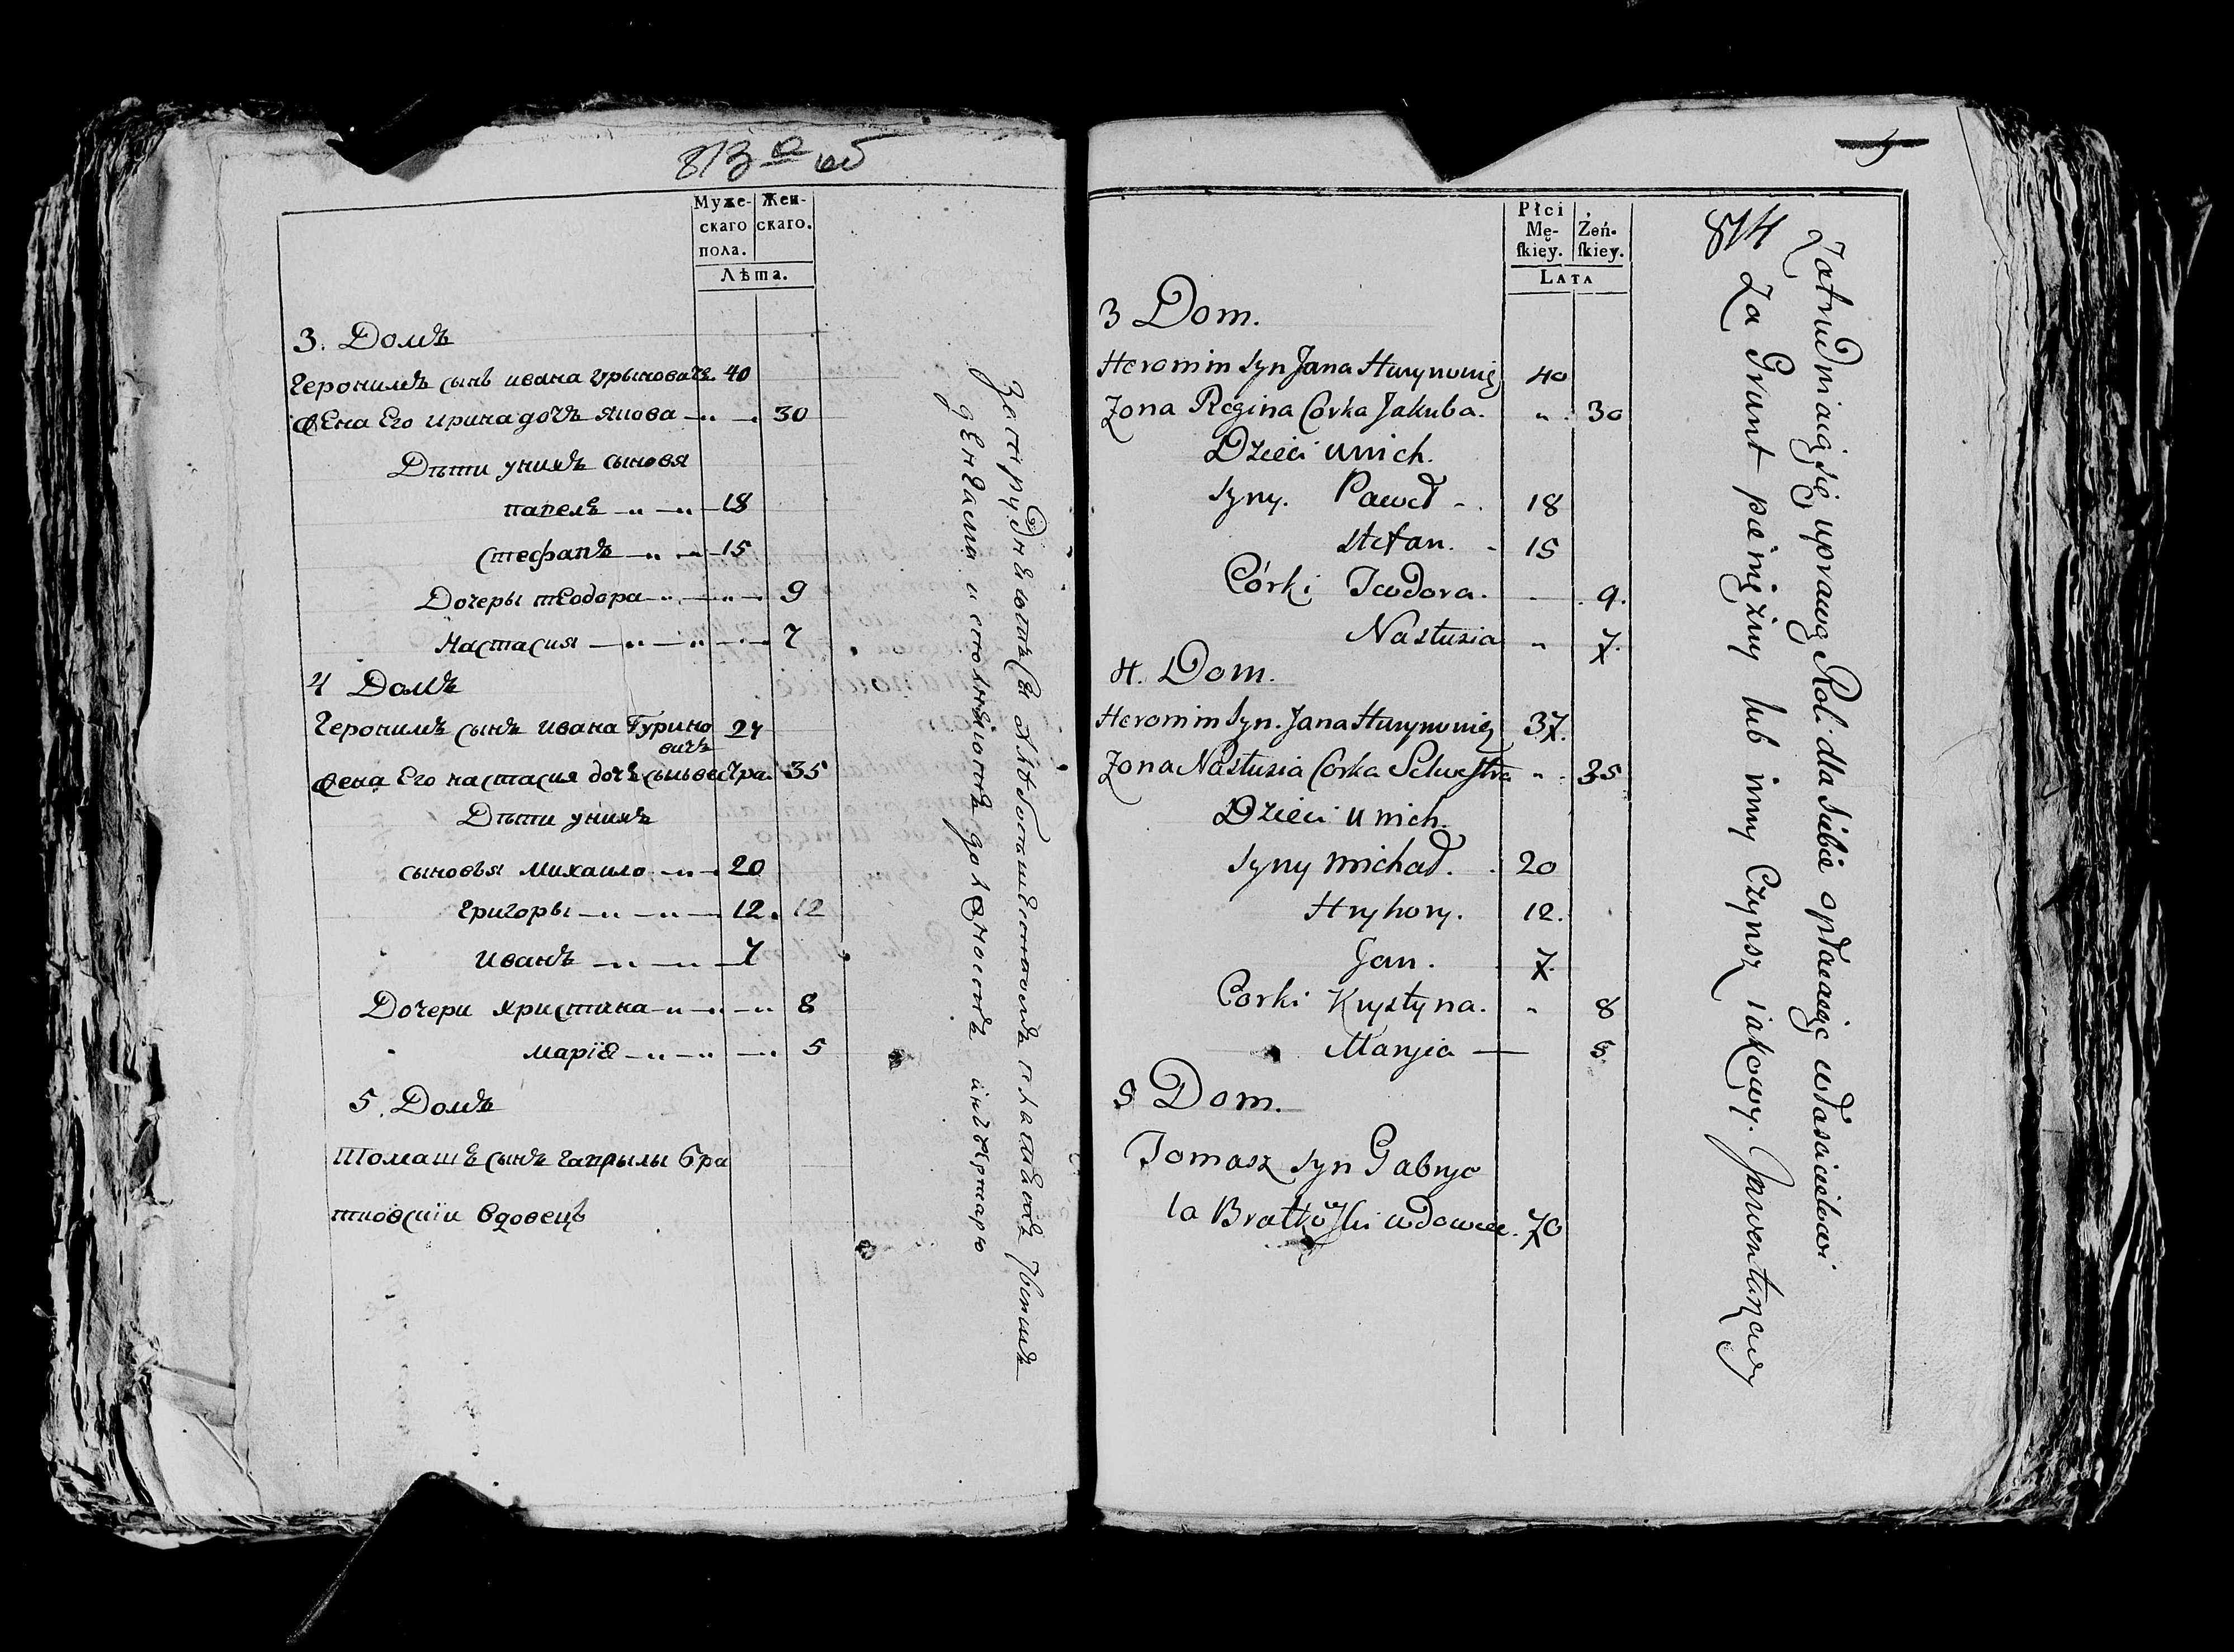 813 об
Муже-
скаго
пола.
Жен-
скаго.
Лѣта.
3. Домъ
Геронимъ сынъ ивана Гурыновичъ 40
Жена Его ирина дочъ якова 30
Дѣти унихъ сыновя
павелъ 18
Стефанъ 15
Дочеры теодора 9
Настасия 7
4 Домъ
Геронимъ сынъ ивана Гурино
вичъ 27
Жена Его настасия дочъ сильвестра 35
Дѣти унихъ
сыновья Михаило 20
Григоры 12 12
Иванъ 7
Дочери христина 8
Марія 5
5. Домъ
Томашъ сынъ гаврылы Бра
тковскiи вдовецъ
813
814
Płci
Mę-
ſkiey.
Żeń-
ſkiey.
LATA
3 Dom.
Heronim syn Jana Hurynowicz 40
Zona Regina Corka Jakuba. 30
Dzieci unich.
Syny. Paweł 18
Stefan. 15
Córki Teodora. 9.
Nastusia 7.
4. Dom.
Heronim Syn. Jana Hurynowicz 37.
Zona Nastusia Corka Selwestra 35
Dzieci u nich.
Syny Michał. 20
Hryhory. 12.
Jan. 7.
Corki Krystyna. 8
Maryia 5.
5 Dom.
Tomasz syn Gabrye
la Bratkowski wdowiec. 70
Zatrudniaią się uprawą Roli dla siebie opłacaiąc właścicielowi
za Grunt pienięzny lub inny Czynsz iakowy. Jnwentarzowy